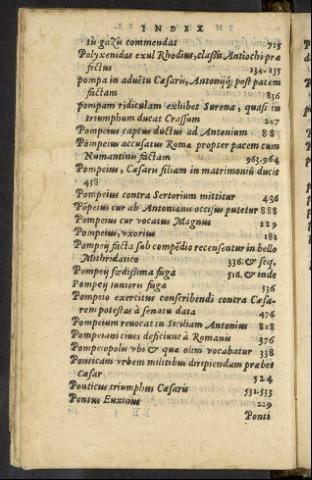 INDEX
tū gazū commendat 715
Polyxenidas exul Rhodius, classis Antiochi præ
fectus 134.135
pompa in aduētu Cæsaris, Antonijq; post pacem
factam 836
pompam ridiculam exhibet Surena, quasi in
triumphum ducat Crassum 207
Pompeius captus ductus ad Antonium 88
Pompeius accusatus Romæ propter pacem cum
Numantinis factam 963.964
Pompeius, Cæsaris filiam in matrimoniū ducit
458
Pompeius contra Sertorium mittitur 436
Pōpeius cur ab Antonianis occisus putetur 888
Pompeius cur vocatus Magnus 229
Pompeius, vxorius 182
Pompeij facta sub compēdio recensentur in bello
Mithridatico 336. & seq.
Pompeij fœdissima fuga 516. & inde
Pompeij iunioris fuga 536
Pompeio exercitus conscribendi contra Cæsa-
rem potestas à senatu data 476
Pompeium reuocat in Siciliam Antonius 818
Pompeiani ciues deficiunt à Romanis 376
Pompeiopolis vbi & quæ olim vocabatur 338
Ponticam vrbem militibus diripiendam præbet
Cæsar 524
Ponticus triumphus Cæsaris 532.533
Pontus Euxinus 229
Ponti